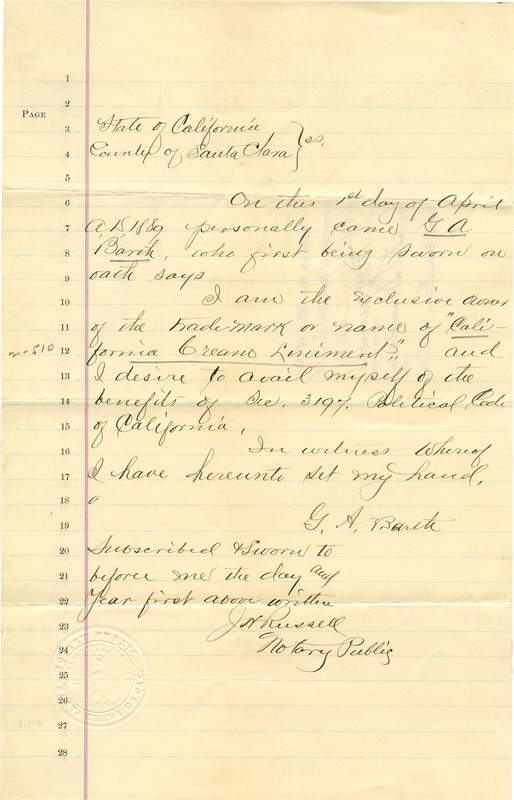 1
2
PAGE
3 State of California
4 County of Santa Clara } ss.
5
6 On this 1st day of April
7 A,D 1889 personally came G A
8 Barth, who first being sworn on
9 oath says
10 I am the exclusive owner
11 of the trade-mark or name of "Cali-
no 510
12 fornia Cream Liniment", and
13 I desire to avail myself of the
14 benefits of Sec. 3197. Political Code
15 of California,
16 In witness Whereof
17 I have hereunto set my hand,
18
19 G. A. Barth
20 Subscribed & Sworn to
21 before me the day and
22 Year first above written
23 J H Russell
24 Notary Public
25
26
27
28